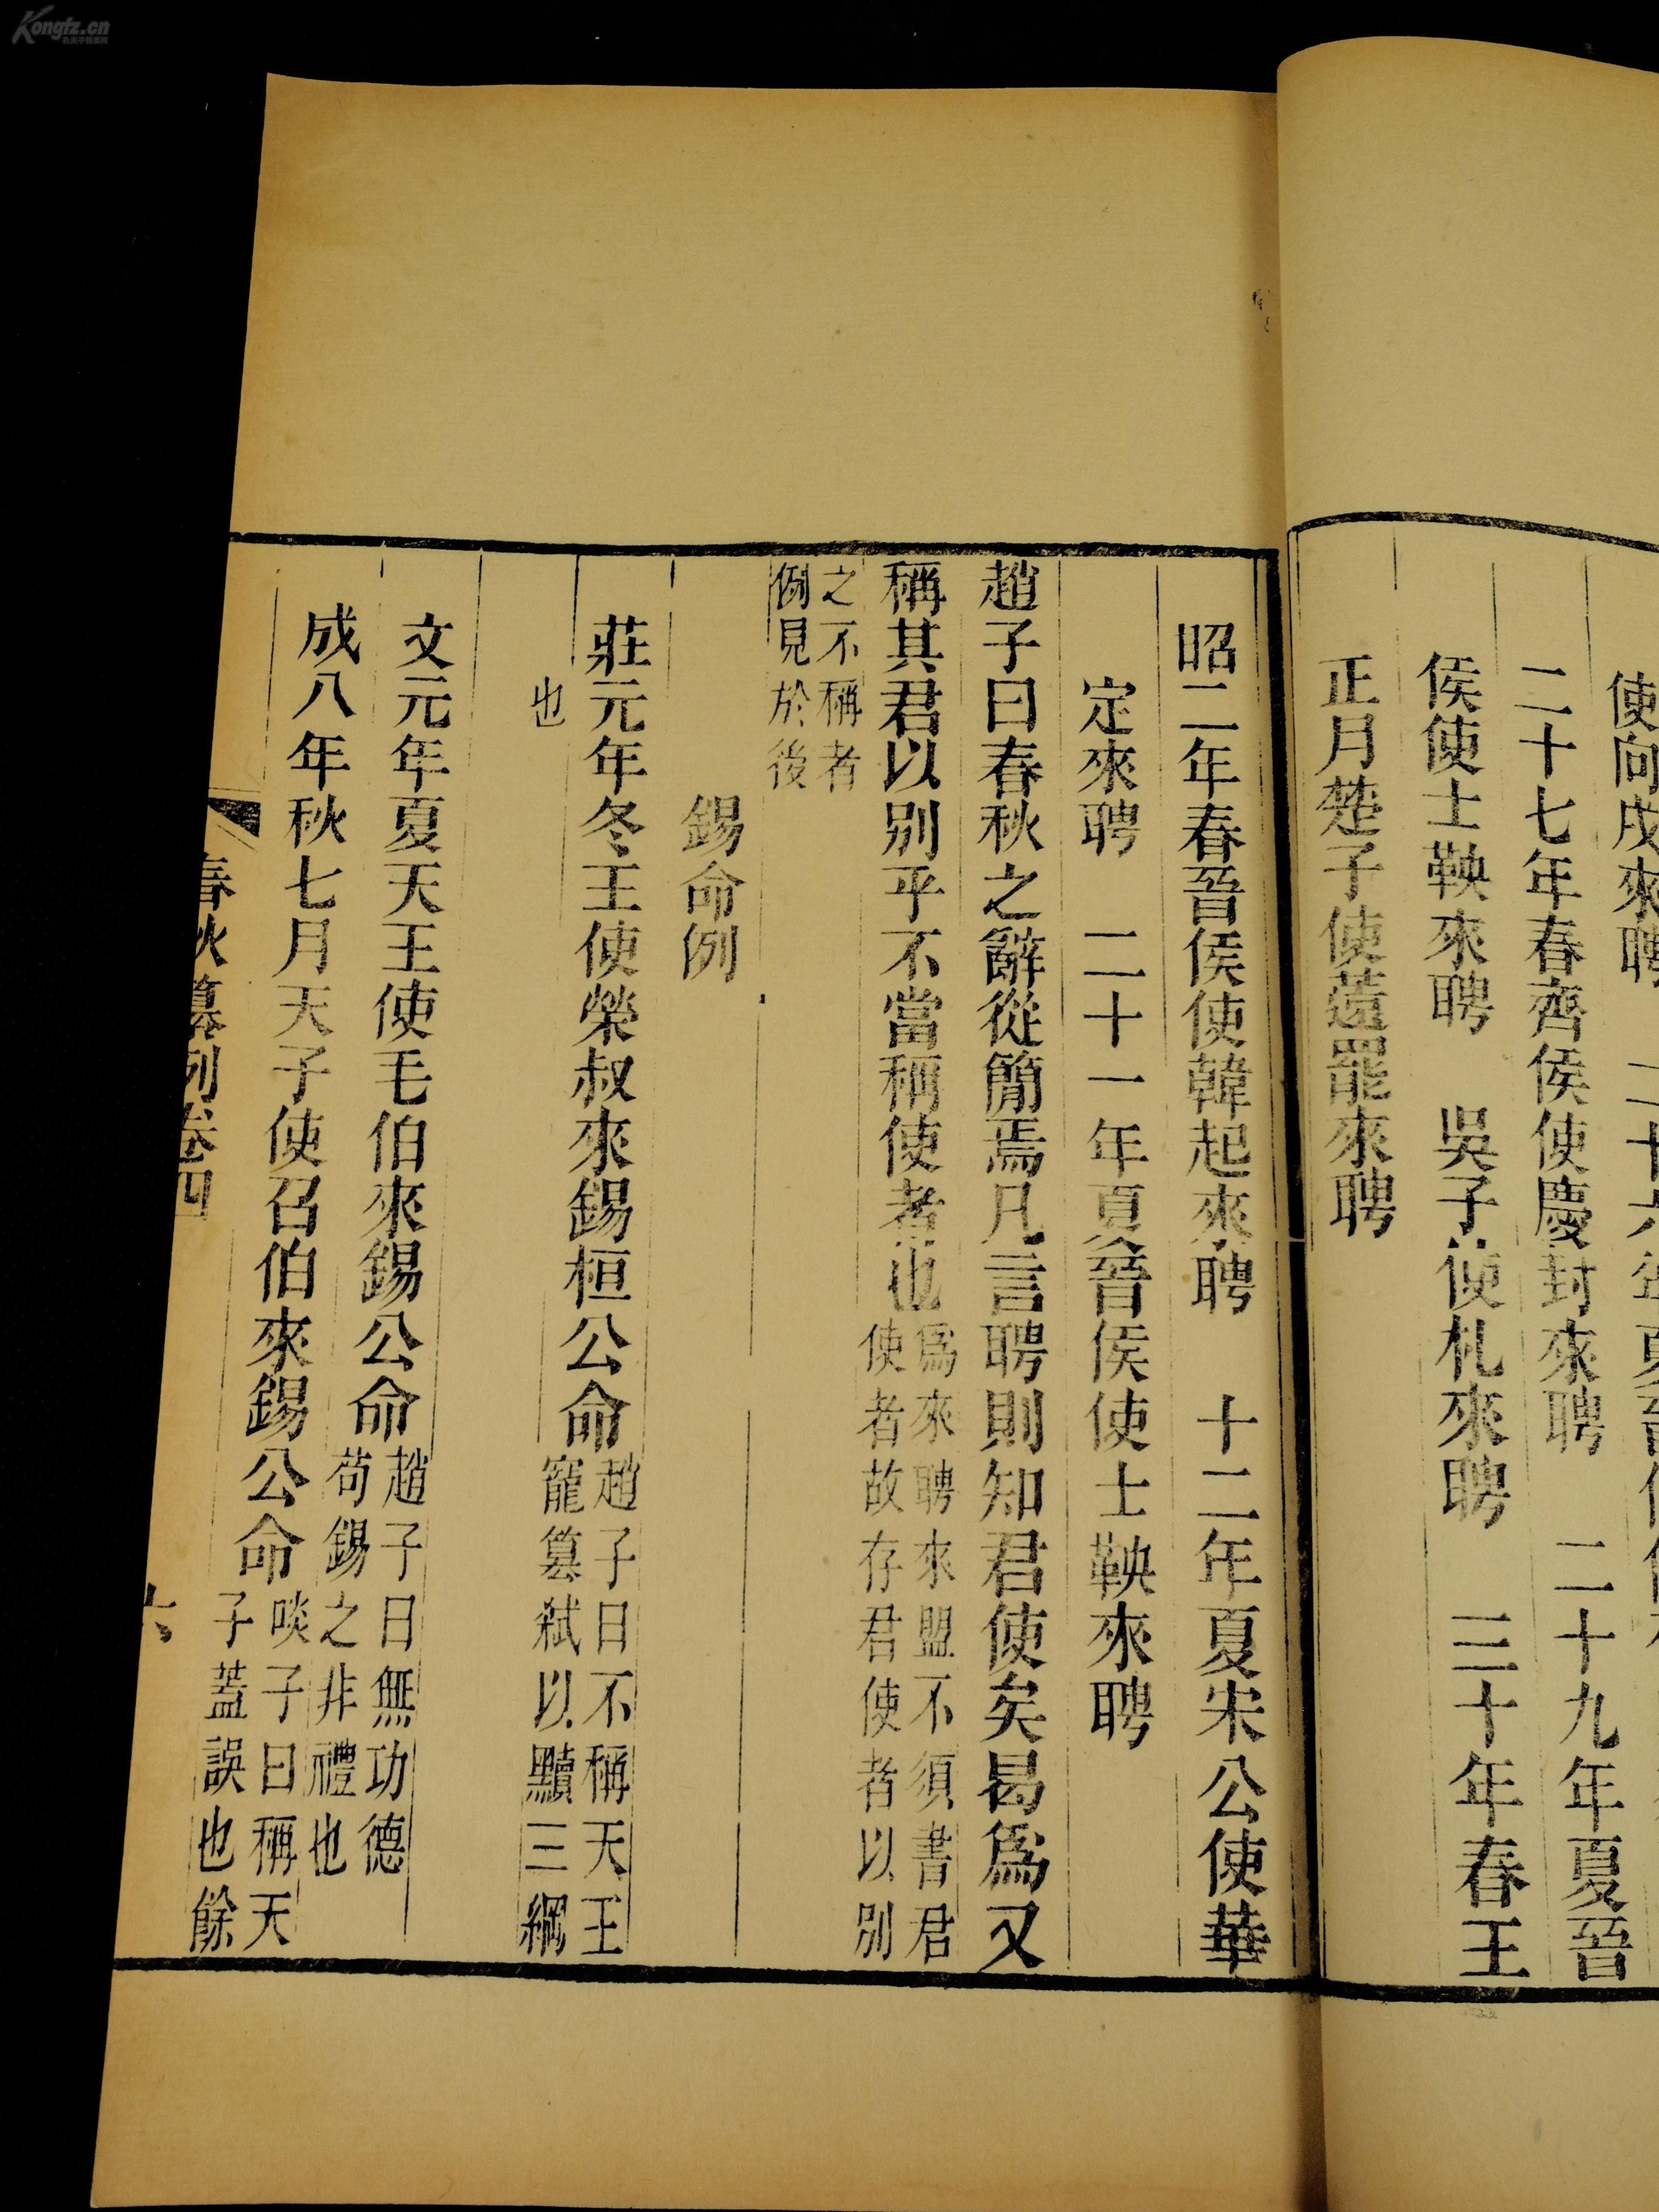 使向戌來聘　二十六年夏晉
二十七年春齊侯使慶封來聘　二十九年夏晉
侯使士鞅來聘　吳子使札來聘　三十年春王
正月楚子使薳罷來聘
昭二年春晉侯使韓起來聘　十二年夏宋公使華
定來聘　二十一年夏晉侯使士鞅來聘
趙子曰春秋之辭從簡焉凡言聘則知君使矣曷爲又
稱其君以別乎不當稱使者也
爲來聘來盟不須書君
使者故存君使者以別
之不稱者
例見於後
錫命例
莊元年冬王使榮叔來錫桓公命
趙子曰不稱天王
寵篡弒以黷三綱
也
文元年夏天王使毛伯來錫公命
趙子曰無功德
苟錫之非禮也
成八年秋七月天子使召伯來錫公命
啖子曰稱天
子蓋誤也餘
春秋纂例卷四
六
Kongfz.cn